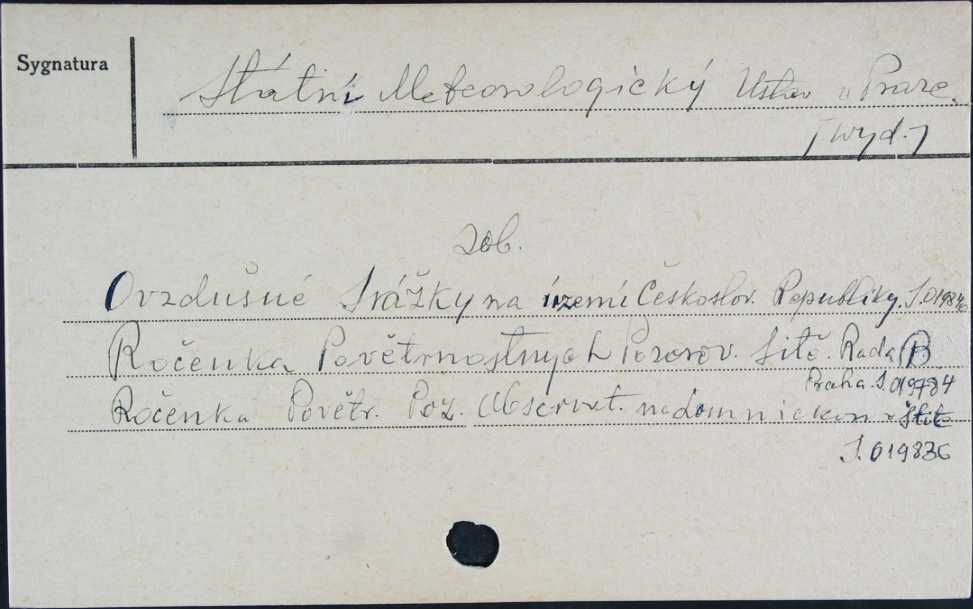 Sygnatura
Státní Meteorologický Ustav v Praze.
[wyd.]
zob.
Ovzdušné Srážky na území Českoslov. Republiky. S.
Ročenka Povětrnostnych Pozorov. Sítě. Rada B
Praha. S.
Ročenka Povětr. Poz. Observat.
S. 019836